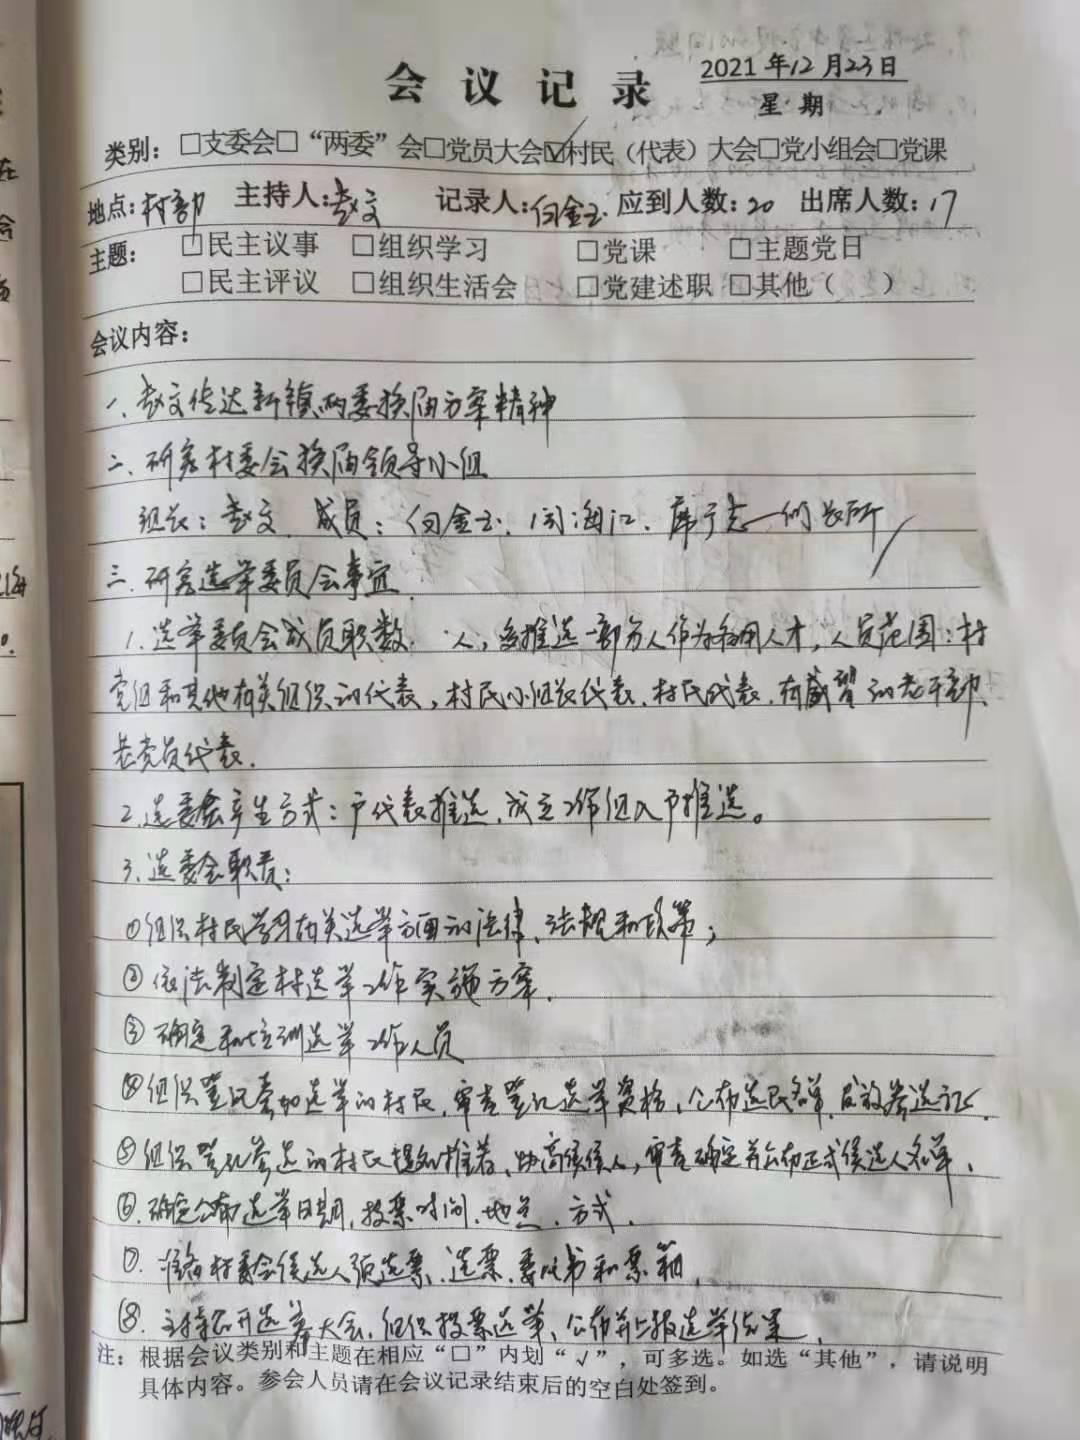 会议记录
2021年12月23日
星期
类别：□支委会□“两委”会□党员大会☑村民（代表）大会□党小组会□党课
地点：村部 主持人：赵文 记录人：闫金玉 应到人数：20 出席人数：17
主题： □民主议事 □组织学习 □党课 □主题党日
□民主评议 □组织生活会 □党建述职 □其他（ ）
会议内容：
一、赵文传达新镇两委换届方案精神
二、研究村委会换届领导小组
组长：赵文 成员：闫金玉、闫海江、席
三、研究选举委员会事宜
1.选举委员会成员职数 人，多推选一部分人作为备用人才，人员范围：村
党组和其他有关组织的代表，村民小组长代表、村民代表、有威望的老干部、
老党员代表.
2.选委会产生方式：户代表推选，成立工作组入户推选。
3.选委会职责：
①组织村民学习有关选举方面的法律、法规和政策；
②依法制定村选举工作实施方案.
③确定和培训选举工作人员
④组织登记参加选举的村民，审查登记选举资格，公布选民名单，发放参选证.
⑤组织登记参选的村民提名推荐、协商候选人，审查确定并公布正式候选人名单、
⑥.确定公布选举日期，投票时间、地点、方式.
⑦.准备村委会候选人预选票、选票、委托书和票箱.
⑧.主持召开选举大会，组织投票选举、公布并上报选举结果.
注：根据会议类别和主题在相应“□”内划“√”，可多选。如选“其他”，请说明
具体内容。参会人员请在会议记录结束后的空白处签到。